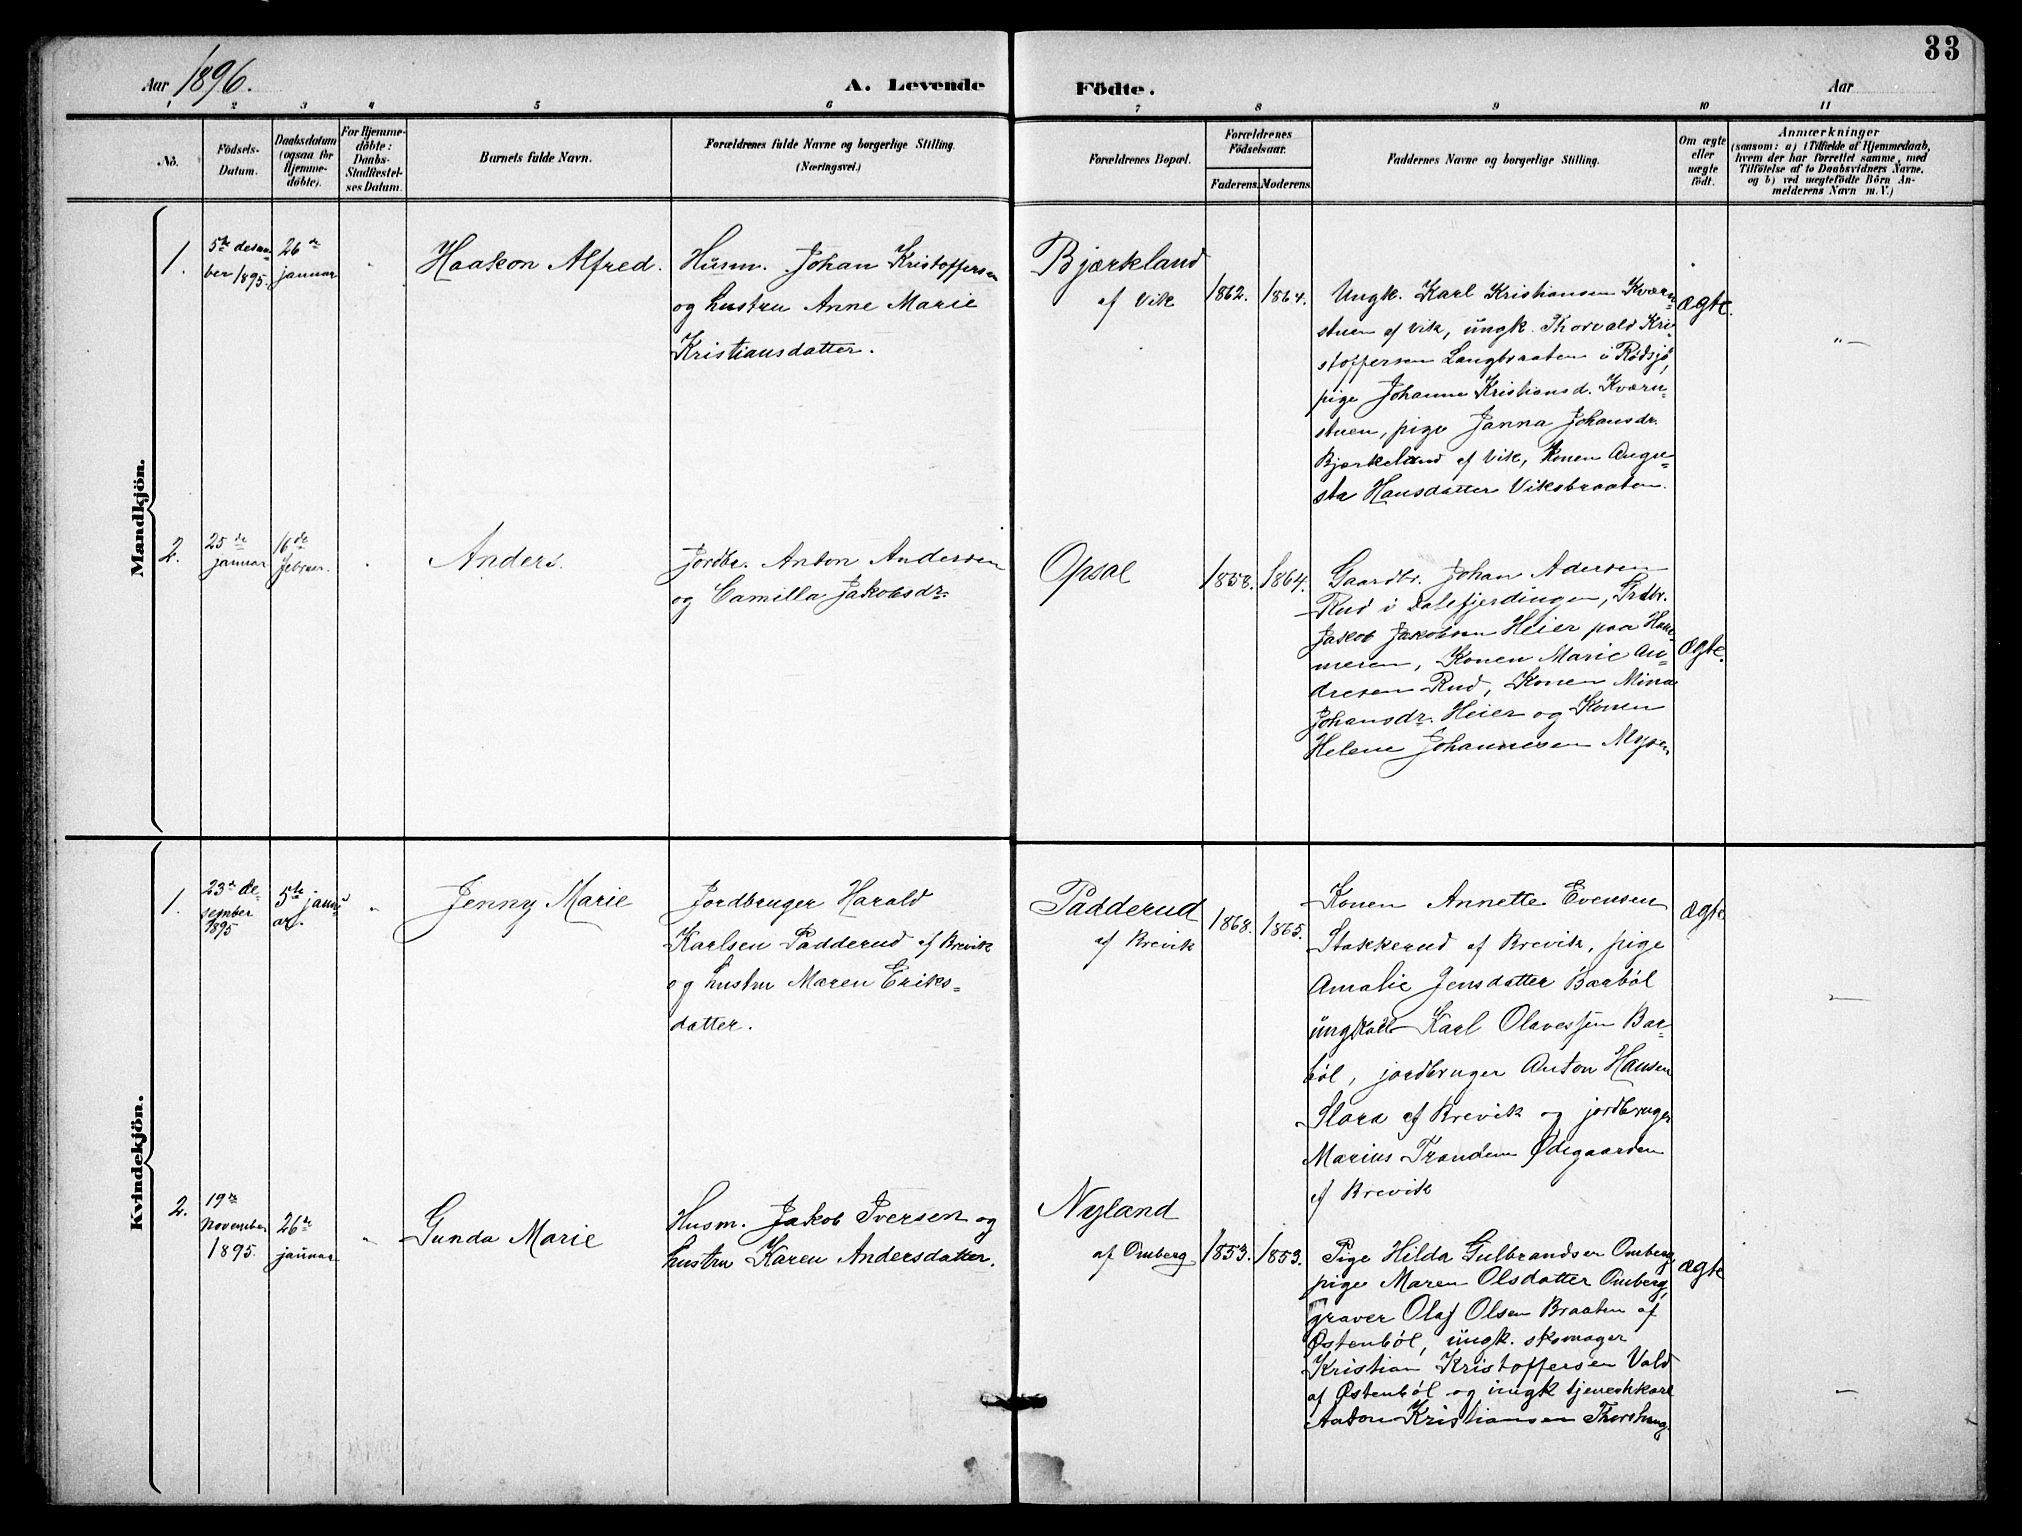 33
Aar 1896.
A. Levende
Födte.
Aar
1 2 3 4 5 6 7 8 9 10 11
No.
Födsels-
Datum.
Daabsdatum
(ogsaa for
Hjemme-
döbte).
For Hjemme-
döbte:
Daabs-
Stadfæstel-
ses Datum.
Barnets fulde Navn.
Forældrenes fulde Navne og borgerlige Stilling.
(Næringsvei.)
Forældrenes Bopæl.
Forældrenes
Födselsaar.
Faderens.
Moderens.
Faddernes Navne og borgerlige Stilling.
Om ægte
eller
uægte
födt.
Anmærkninger
(saasom: a) i Tilfælde af Hjemmedaab,
hvem der har forrettet samme, med
Tilföielse af to Daabsvidners Navne,
og b) ved uægtefödte Börn An-
melderens Navn m. V.)
Mandkjön.
1.
5te desem-
ber 1895.
26de
januar
"
Haakon Alfred.
Husm. Johan Kristoffersen
og hustru Anne Marie
Kristiansdatter.
Bjærkland
af Vik
1862.
1864.
Ungk. Karl Kristiansen Kværn-
stuen af Vik, ungk. Thorvald Kri-
stoffersen Langbraaten i Rødsjø,
pige Johanne Kristiansd. Kværn-
stuen, pige Janna Johansdr.
Bjærkeland af Vik, Konen Augu-
sta Hansdatter Viksbraaten.
ægte.
"—
2.
25de
januar
16de
februar.
"
Anders.
Jordbr. Anton Andersen
og Camilla Jakobsdr.
Opsal
1858.
1864.
Gaardbr. Johan Adersen
Rud i Dalefjerdingen,
Jakob Jakobsen Heier paa Ham-
meren, Konen Marie An-
dresen Rud, Konen Mina
Johansdr. Heier og Konen
Helene Johannesen Mysen
ægte.
Kvindekjön.
1.
23de de-
sember
1895
5te janu-
ar.
"
Jenny Marie
Jordbruger Harald
Karlsen Padderud af Brevik
og hustru Maren Eriks-
datter.
Padderud
af Brevik
1868.
1865.
Konen Annette Evensen
Stakkerud af Brevik, pige
Amalie Jensdatter Barbøl
ungkarl Karl Olavessen Bar-
bøl, jordbruger Anton Hansen
Slora af Brevik og jordbruger
Marius Trandem Ødegaarden
af Brevik
ægte
—
2.
19de
november
1895.
26de
januar
"
Gunda Marie
Husm. Jakob Iversen og
hustru Karen Andersdatter.
Nyland
af Omberg
1853.
1853.
Pige Hilda Gulbrandsen Omberg,
pige Maren Olsdatter Omberg,
graver Olaf Olsen Braaten af
Østenbøl, ungk. skomager
Kristian Kristoffersen Vald
af Østenbøl og ungk tjenestkarl
Anton Kristiansen Thorshaug.
ægte
—